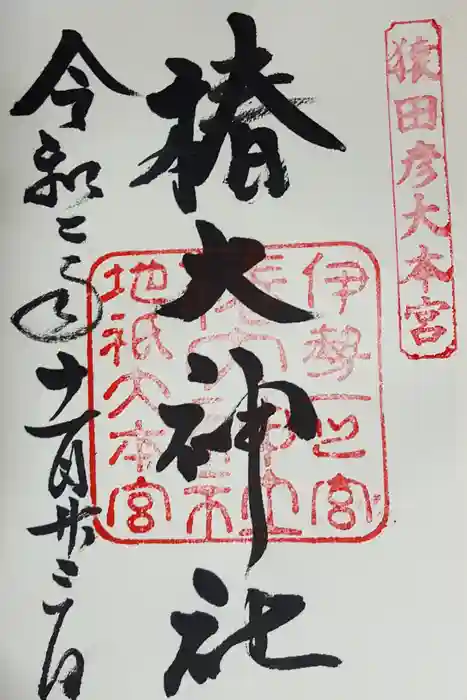 猿田彦大本宮
伊勢一之宮
椿大神社
地祇大本宮
椿大神社
令和二年十一月廿三日